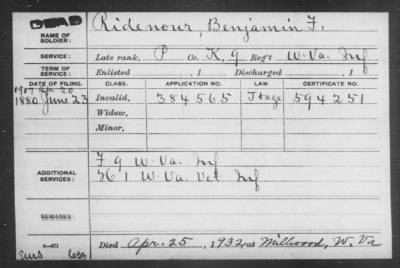 DEAD
NAME OF SOLDIER: Ridenour, Benjamin F.
SERVICE: Late rank, P Co. K, 9 Reg't W. Va. Inf
TERM OF SERVICE: Enlisted , 1 Discharged , 1
DATE OF FILING. CLASS. APPLICATION NO. LAW. CERTIFICATE NO.
1907 20
1880 June 23 Invalid, 384565 594251
Widow,
Minor,
ADDITIONAL SERVICES:
F 9 W. Va. Inf
1 W. Va. Vet Inf
REMARKS:
Died Apr. 25, 1932, at Millwood, W. Va